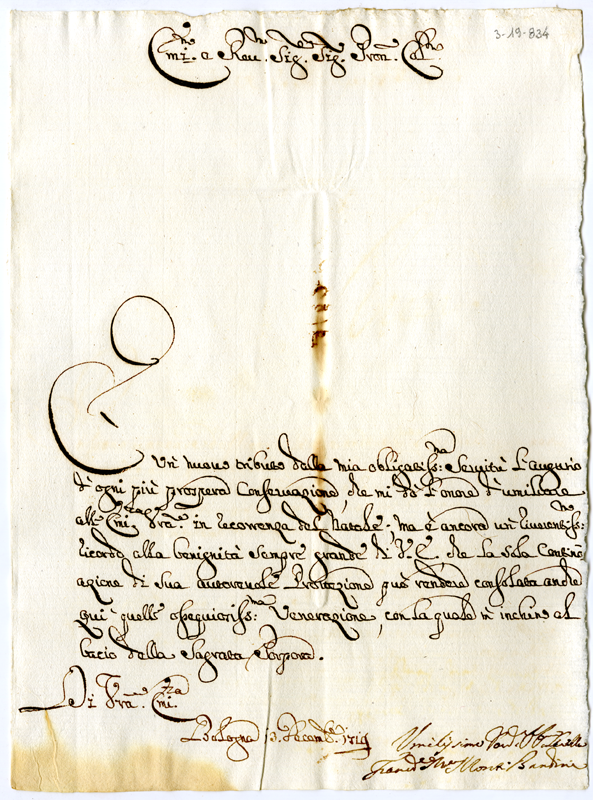 3-19-834
Em.mo e Rev.mo Sig. Sig. Pron. Col.mo
È Un nuovo tributo della mia obligatiss:ma Servitù l'augurio
d'ogni più prospera Conservazione, che mi dò l'onore d'umiliare
all' Em.za Vra. in ricorrenza del Natale; ma è ancora un riverentiss:mo
ricordo alla benignità sempre grande di V. E. che la sola Continu
azione di Sua autorevole Protezione può rendere consolata anche
qui quella ossequiosiss:ma Venerazione, con la quale m'inchino al
bacio della Sagrata Porpora.
Di Vra. Em.za
Bologna Decembre 1719
Umilissimo
Franc.o M.a Monti Bandini